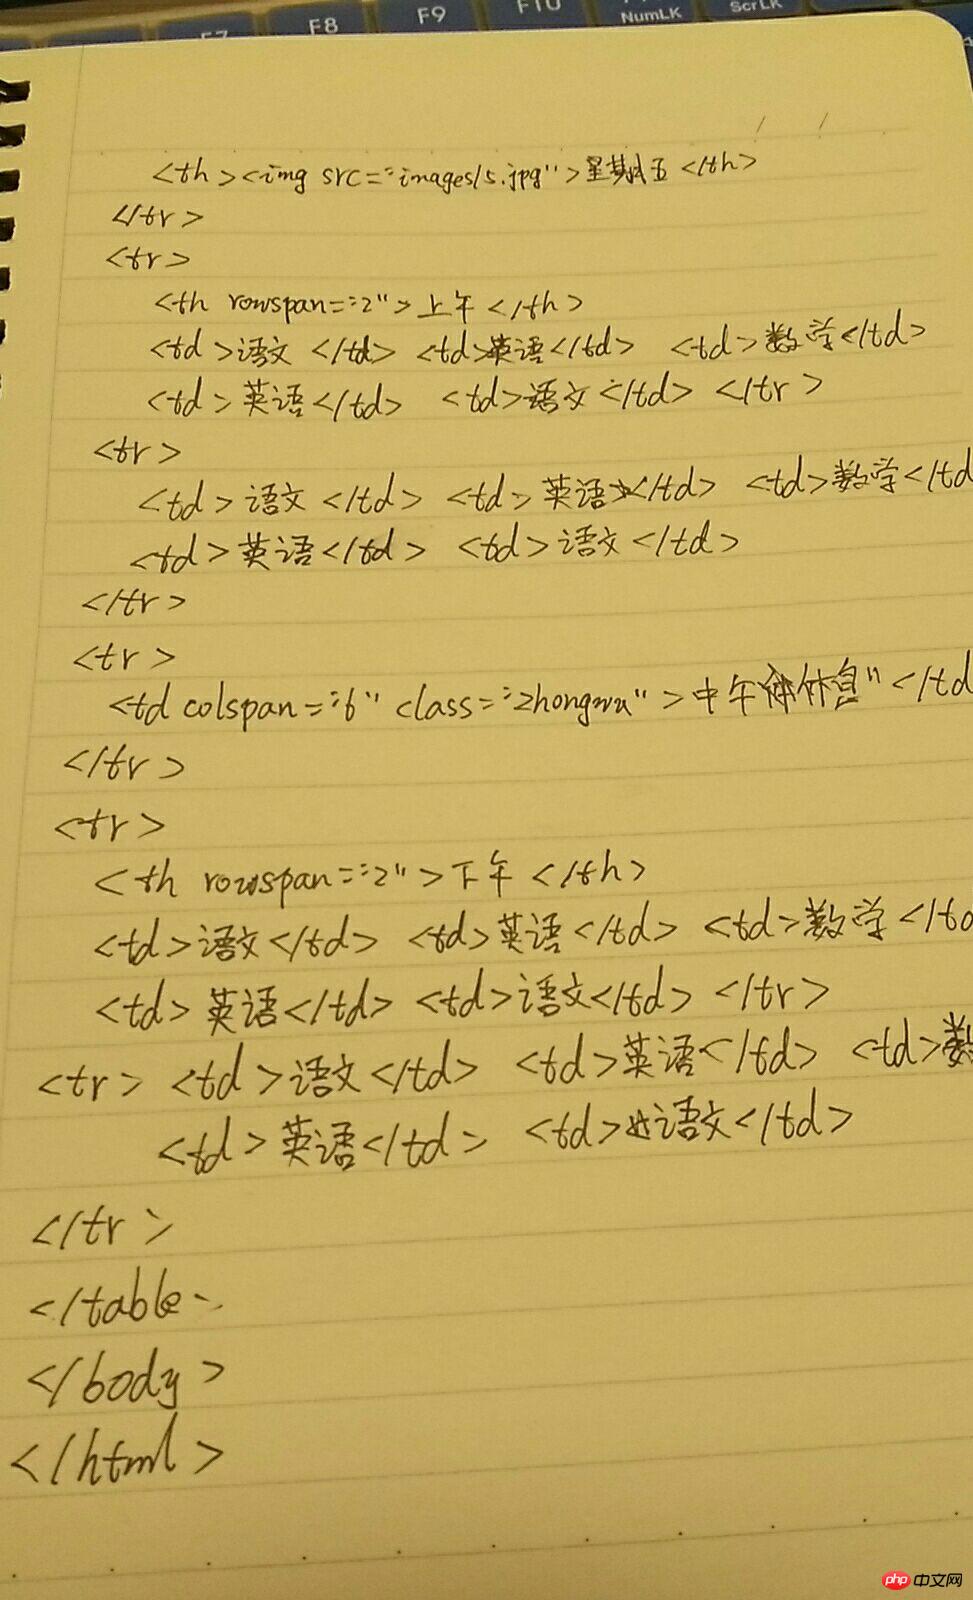 F7 F8 F9 F10 NumLK ScrLK
<th><img src="images/5.jpg">星期五</th>
</tr>
<tr>
<th rowspan="2">上午</th>
<td>语文</td> <td>英语</td> <td>数学</td>
<td>英语</td> <td>语文</td> </tr>
<tr>
<td>语文</td> <td>英语</td> <td>数学</td
<td>英语</td> <td>语文</td>
</tr>
<tr>
<td colspan="6" class="zhongwu">中午休息"</td
</tr>
<tr>
<th rowspan="2">下午</th>
<td>语文</td> <td>英语</td> <td>数学</td
<td>英语</td> <td>语文</td> </tr>
<tr> <td>语文</td> <td>英语</td> <td>数
<td>英语</td> <td>语文</td>
</tr>
</table>
</body>
</html>
php 中文网